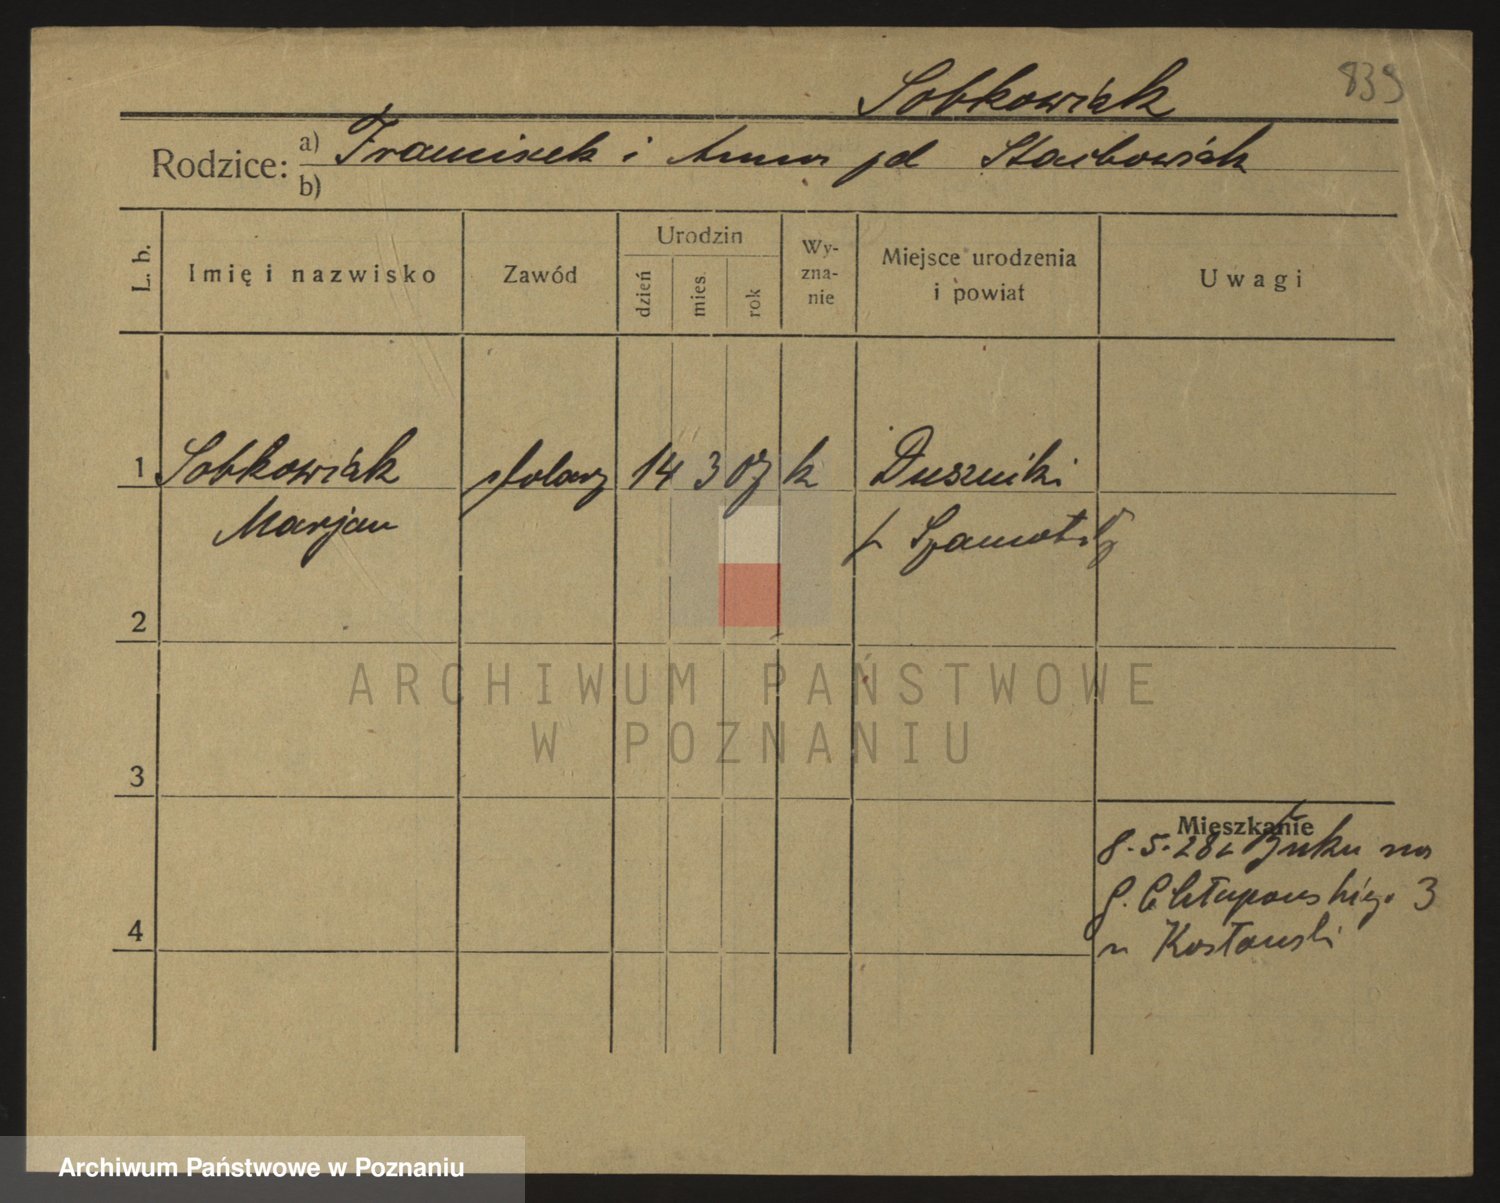 Sobkowiak
839
Rodzice: a) Franciszek i Anna
b)
L. b.
Imię i nazwisko
Zawód
Urodzin
dzień
mies.
rok
Wy-
zna-
nie
Miejsce urodzenia
i powiat
Uwagi
1 Sobkowiak stolarz 14 3 07 k Duszniki
Marjan Szamotuły
2
3
4
Mieszkanie
8.5.28 z Buku na
3
Kozłowski
ARCHIWUM PAŃSTWOWE
W POZNANIU
Archiwum Państwowe w Poznaniu